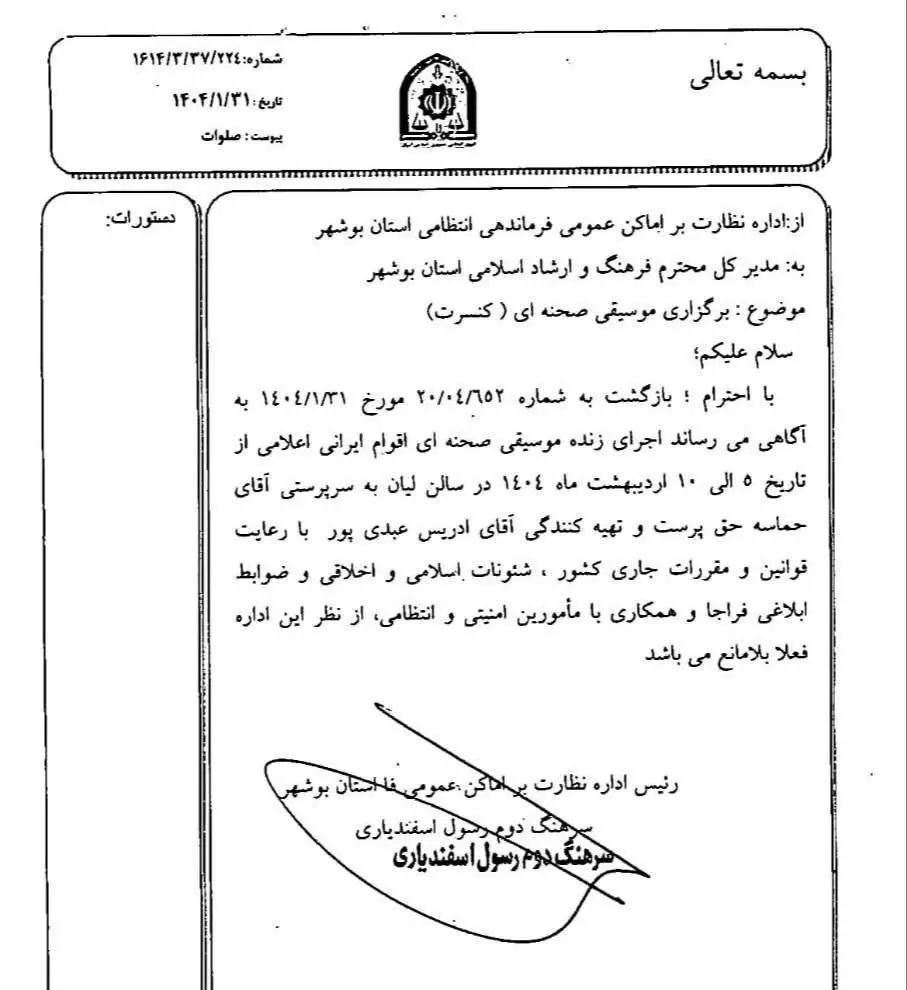 بسمه تعالی
شماره: ۱۶۱۴/۳/۳۷/۲۲٤
تاریخ: ۱۴۰۴/۱/۳۱
پیوست: صلوات
دستورات:
از:اداره نظارت بر اماکن عمومی فرماندهی انتظامی استان بوشهر
به: مدیر کل محترم فرهنگ و ارشاد اسلامی استان بوشهر
موضوع : برگزاری موسیقی صحنه ای ( کنسرت)
سلام علیکم؛
با احترام ؛ بازگشت به شماره ۲۰/۰٤/٦٥۲ مورخ ۱٤۰٤/۱/۳۱ به
آگاهی می رساند اجرای زنده موسیقی صحنه ای اقوام ایرانی اعلامی از
تاریخ ٥ الی ۱۰ اردیبهشت ماه ۱٤۰٤ در سالن لیان به سرپرستی آقای
حماسه حق پرست و تهیه کنندگی آقای ادریس عبدی پور با رعایت
قوانین و مقررات جاری کشور ، شئونات اسلامی و اخلاقی و ضوابط
ابلاغی فراجا و همکاری با مأمورین امنیتی و انتظامی، از نظر این اداره
فعلا بلامانع می باشد
رئیس اداره نظارت بر اماکن عمومی فا استان بوشهر
سرهنگ دوم رسول اسفندیاری
سرهنگ دوم رسول اسفندیاری